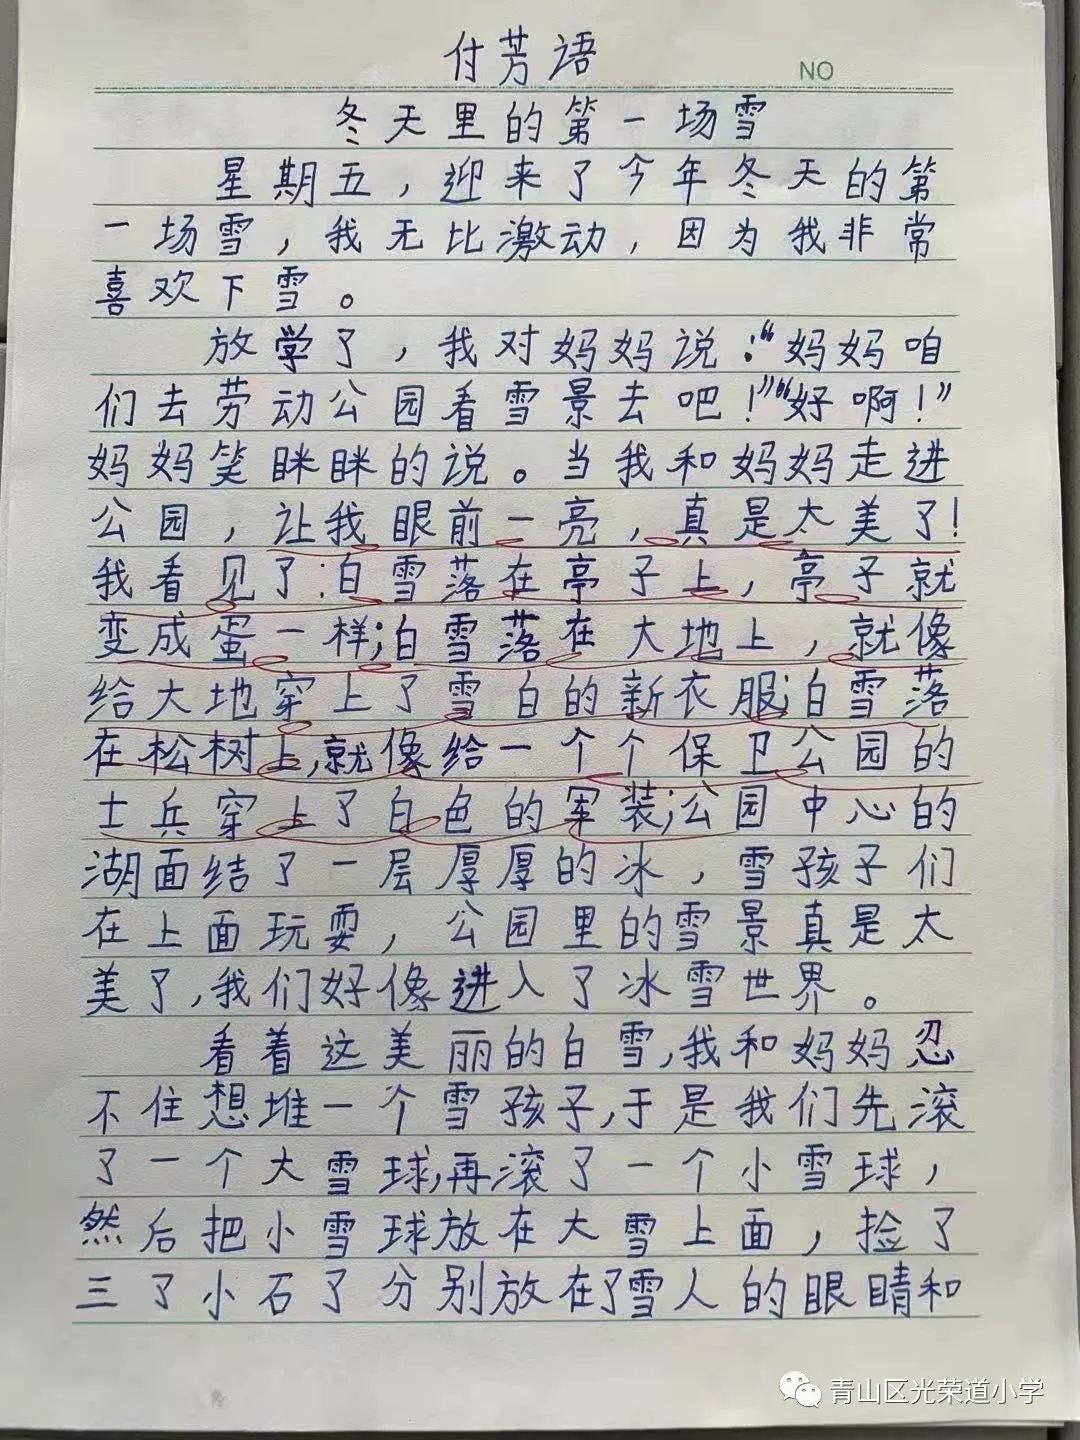 付芳语
NO
冬天里的第一场雪
星期五，迎来了今年冬天的第
一场雪，我无比激动，因为我非常
喜欢下雪。
放学了，我对妈妈说：“妈妈咱
们去劳动公园看雪景去吧！”“好啊！”
妈妈笑眯眯的说。当我和妈妈走进
公园，让我眼前一亮，真是太美了！
我看见了：白雪落在亭子上，亭子就
变成蛋一样；白雪落在大地上，就像
给大地穿上了雪白的新衣服；白雪落
在松树上，就像给一个个保卫公园的
士兵穿上了白色的军装；公园中心的
湖面结了一层厚厚的冰，雪孩子们
在上面玩耍，公园里的雪景真是太
美了，我们好像进入了冰雪世界。
看着这美丽的白雪，我和妈妈忍
不住想堆一个雪孩子，于是我们先滚
了一个大雪球，再滚了一个小雪球，
然后把小雪球放在大雪上面，捡了
三了小石了分别放在了雪人的眼睛和
青山区光荣道小学